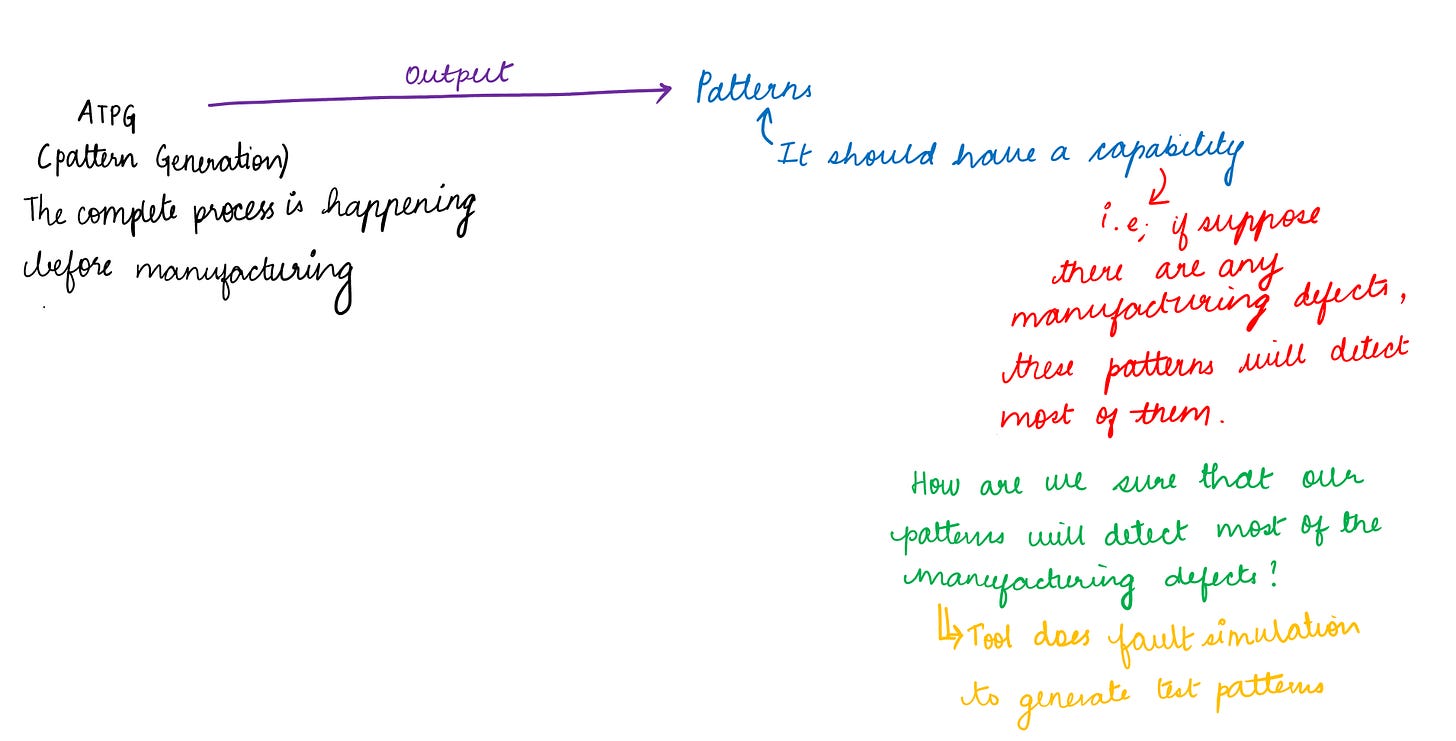 Output
Patterns
ATPG
(pattern Generation)
The complete process is happening
before manufacturing
It should have a capability
i.e; if suppose
there are any
manufacturing defects,
these patterns will detect
most of them.
How are we sure that our
patterns will detect most of the
manufacturing defects?
Tool does fault simulation
to generate test patterns